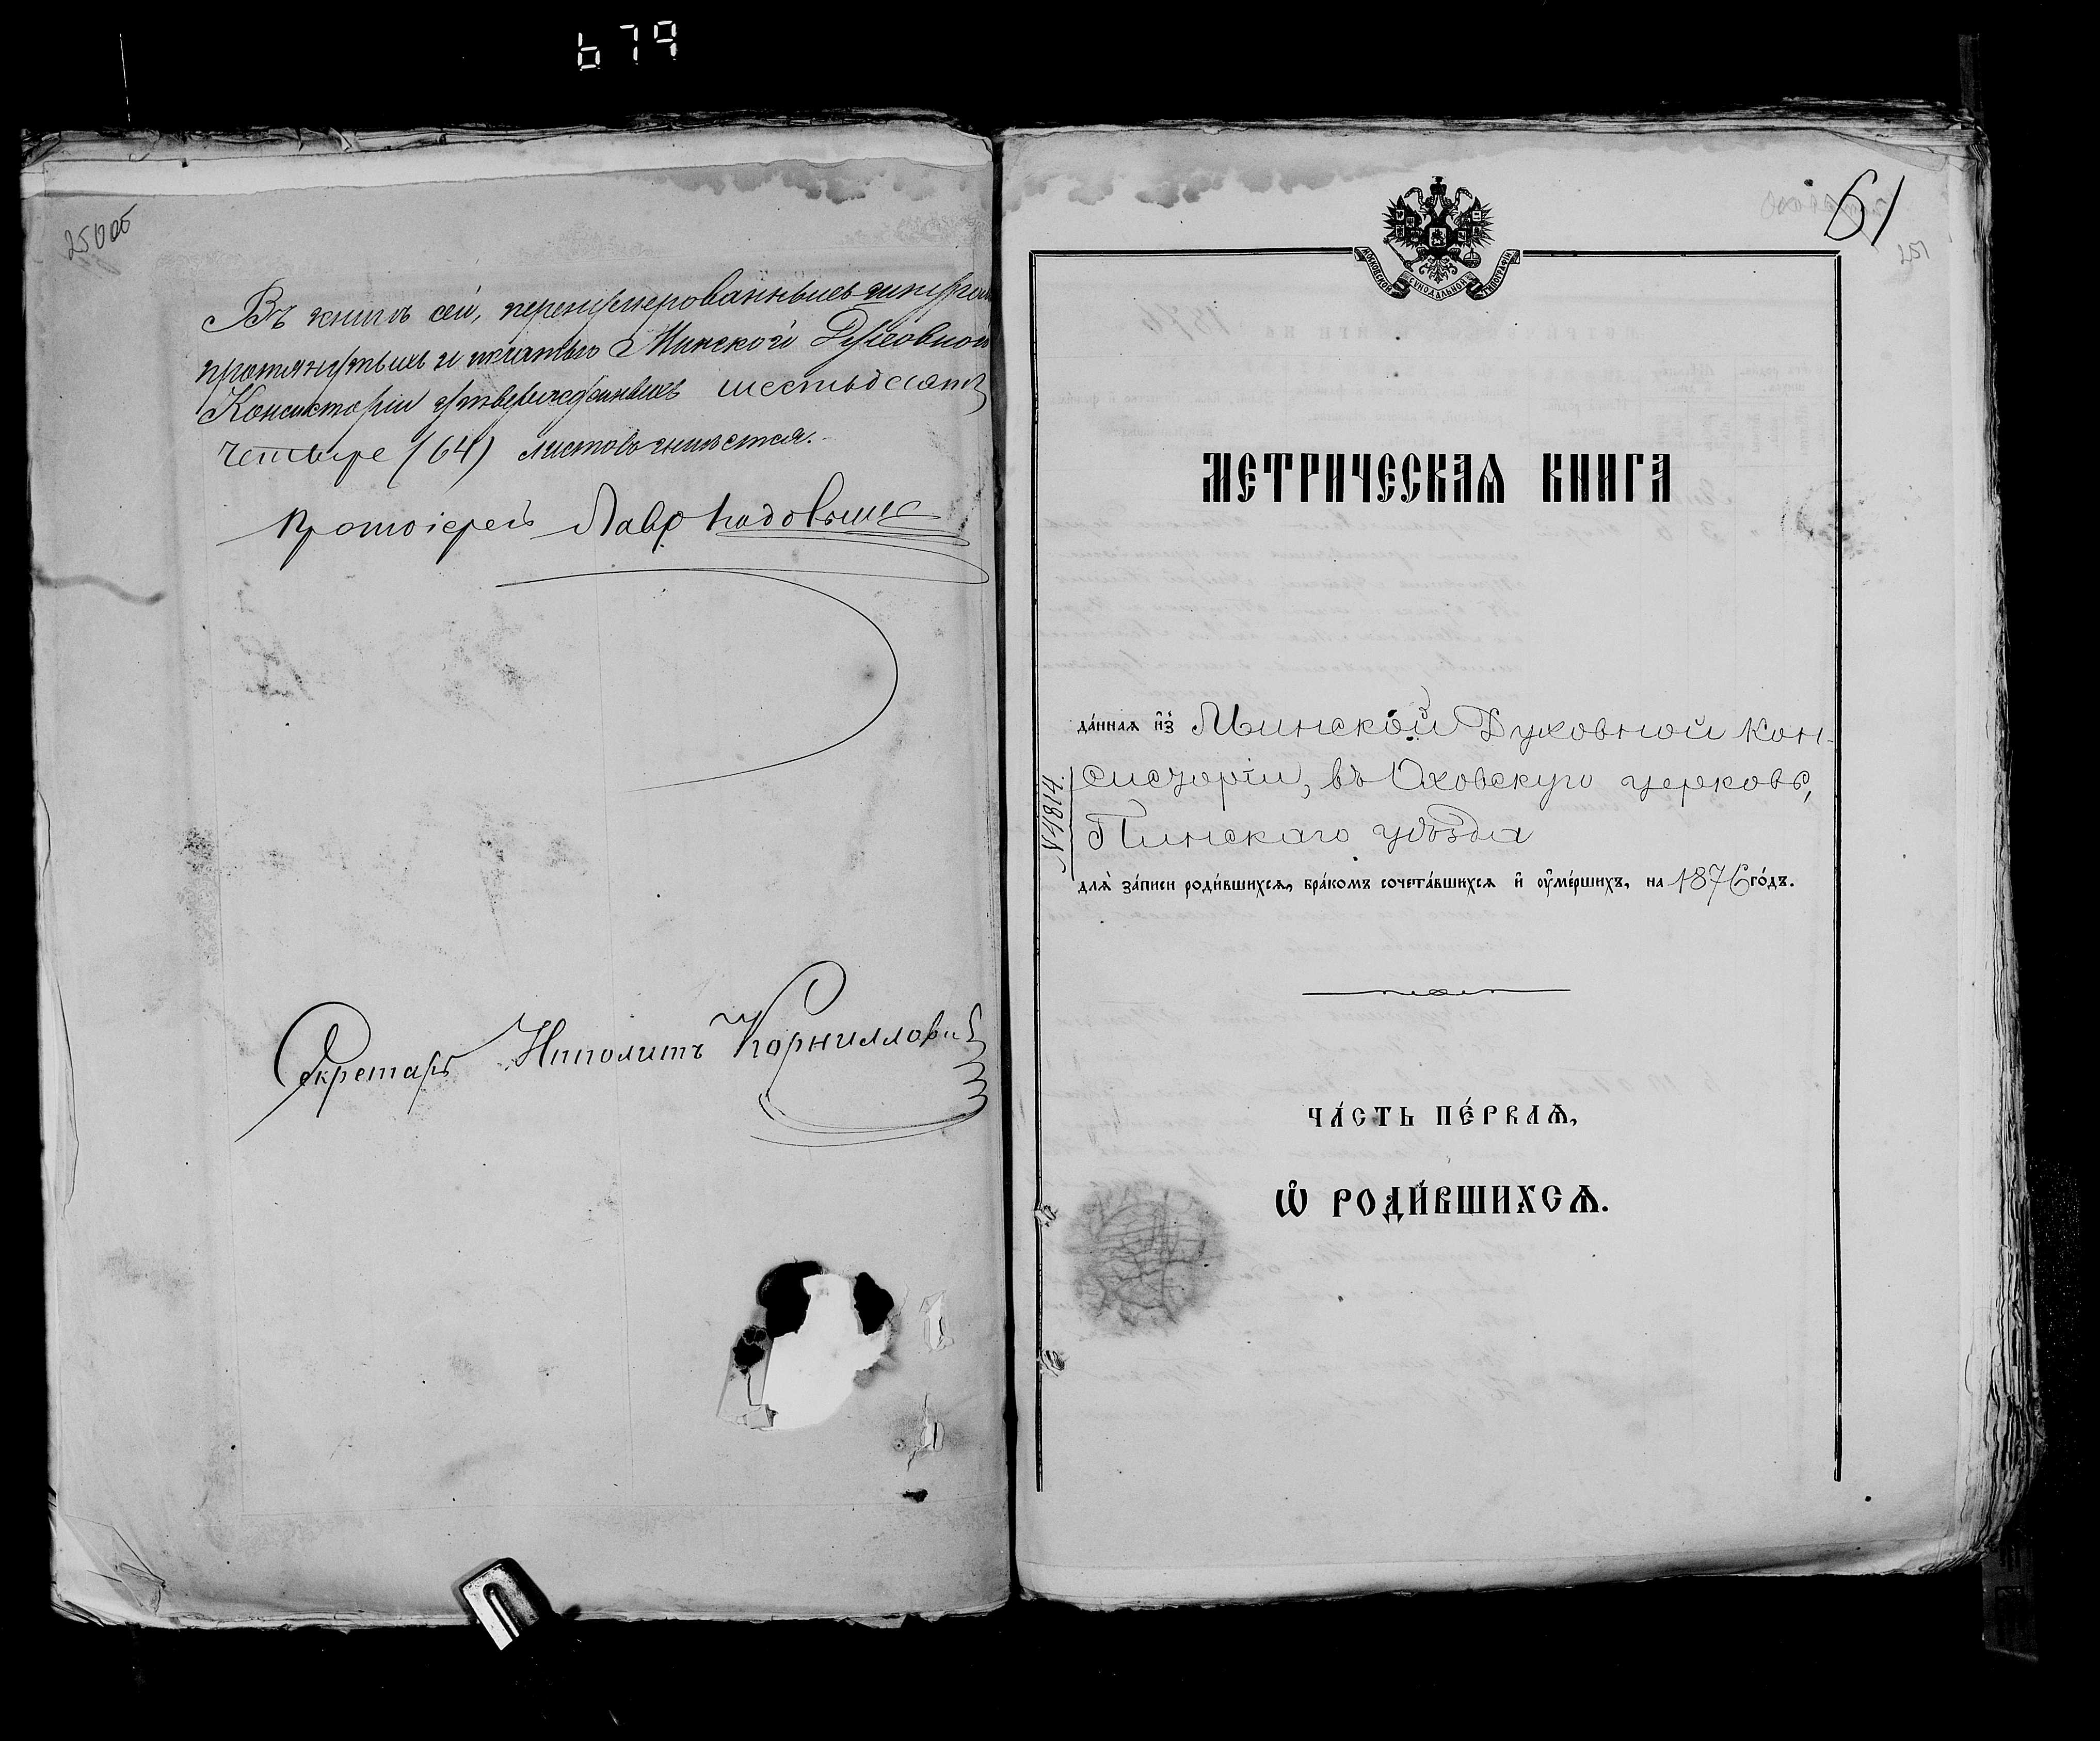 679
250об
Въ книгѣ сей, перенумерованныхъ шнуром
протянутыхъ и печатью Минской Духовной
Консисторіи утвержденныхъ шестьдесятъ
четыре (64) листовъ имѣется.
Протоіерей Лавр
Секретарь Ипполитъ Корнилович
61
251
МОСКОВСКОЙ СѴНОДАЛЬНОЙ ТИПОГРАФІИ
МЕТРИЧЕСКАЯ КНИГА
да́нная и҆з̾ Минской Духовной Кон-
систоріи, въ Оховскую церковь,
Пинскаго уѣзда
№ 4814.
для̀ за́писи роди́вшихся, бра́комъ сочета́вшихся и҆ оу҆ме́ршихъ, на 1876 го́дъ.
ЧА́СТЬ ПЕ́РВАѦ,
Ѽ РОДИ́ВШИХСѦ.